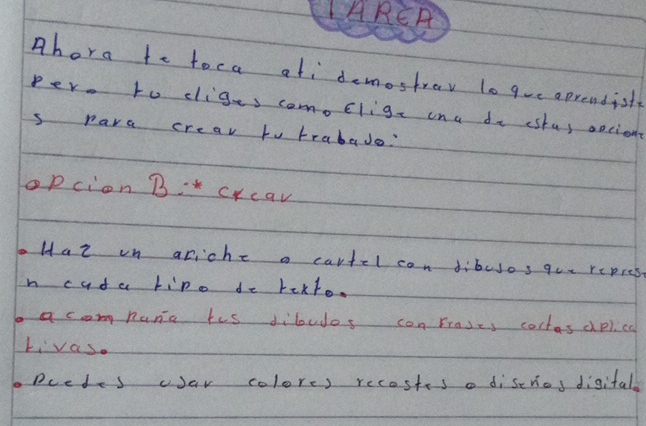 TAREA
Ahora te toca ati demostrar lo que aprendiste
pero tu eliges como Elige una de estas opcione
s para crear tu trabado:
opcion B:* crear
• Haz un afiche o cartel con dibusos que repres
n cada tipo de texto.
• acompaña tus dibudos con frases cortas explica
tivas.
• puedes usar colores recostes o diseños digital.